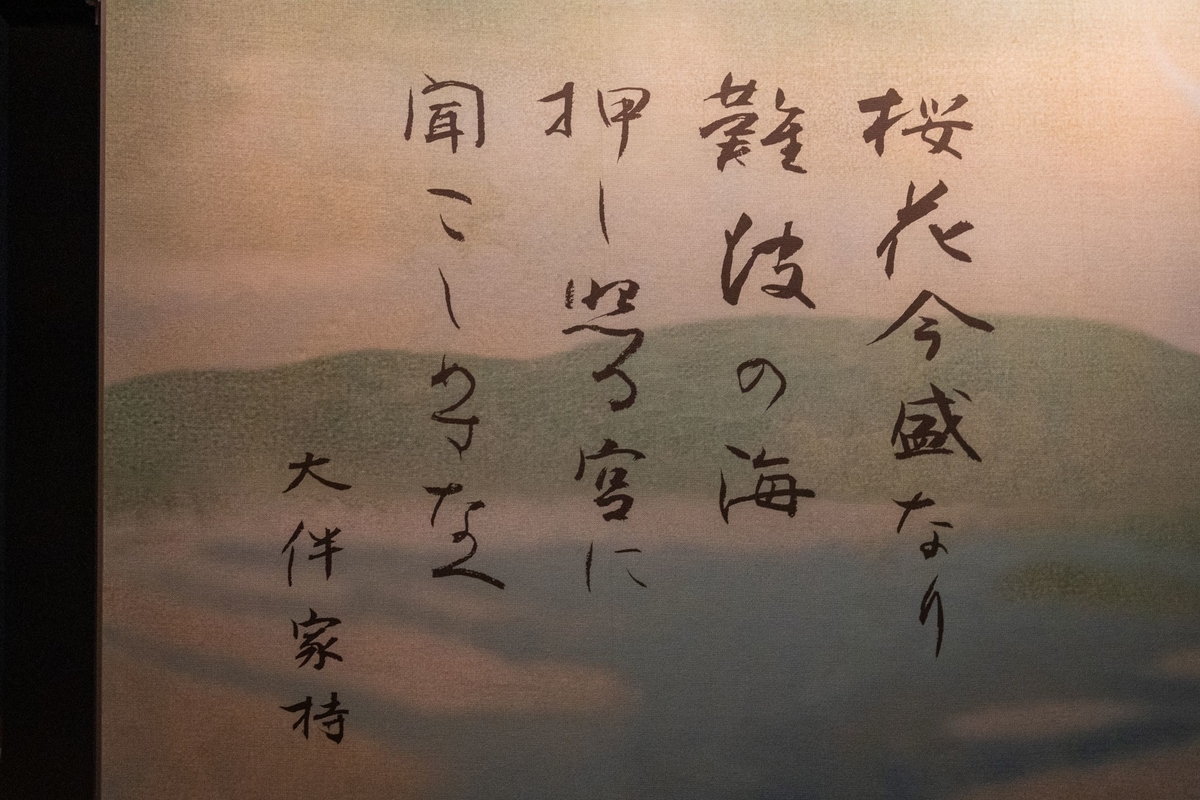 桜花今盛なり
難波の海
押し照る宮に
聞こしめすなへ
大伴家持